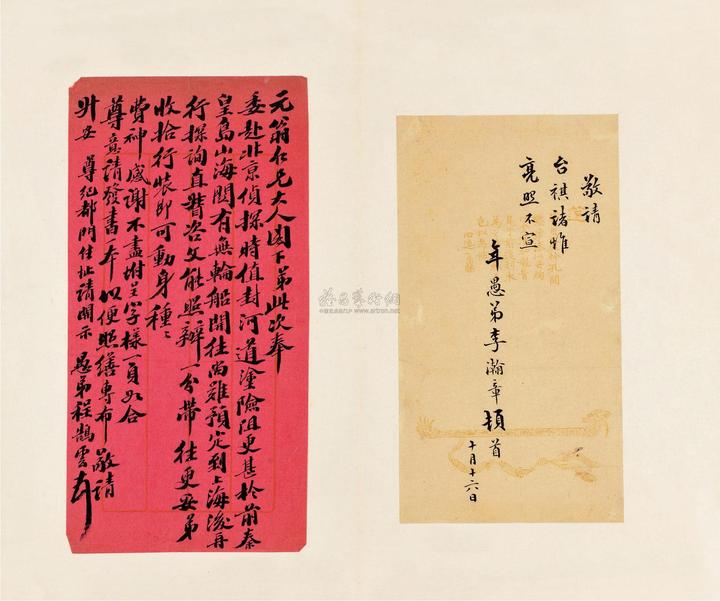 敬請
台祺諸惟
亮照不宣
年愚弟李瀚章頓首
十月十六日
元翁仁兄大人閣下弟此次奉
委赴北京偵探時值封河道塗險阻更甚於前秦
皇島山海關有無輪船開往尚難預定到上海後再
行探詢直督咨文能照辦一分帶往更妥弟
收拾行裝即可動身種〻
費神感謝不盡附呈字樣一頁如合
尊意請發書一本以便照繕專布敬請
升安 尊紀都門住址請開示 愚弟程鵠雲
雅昌藝術網